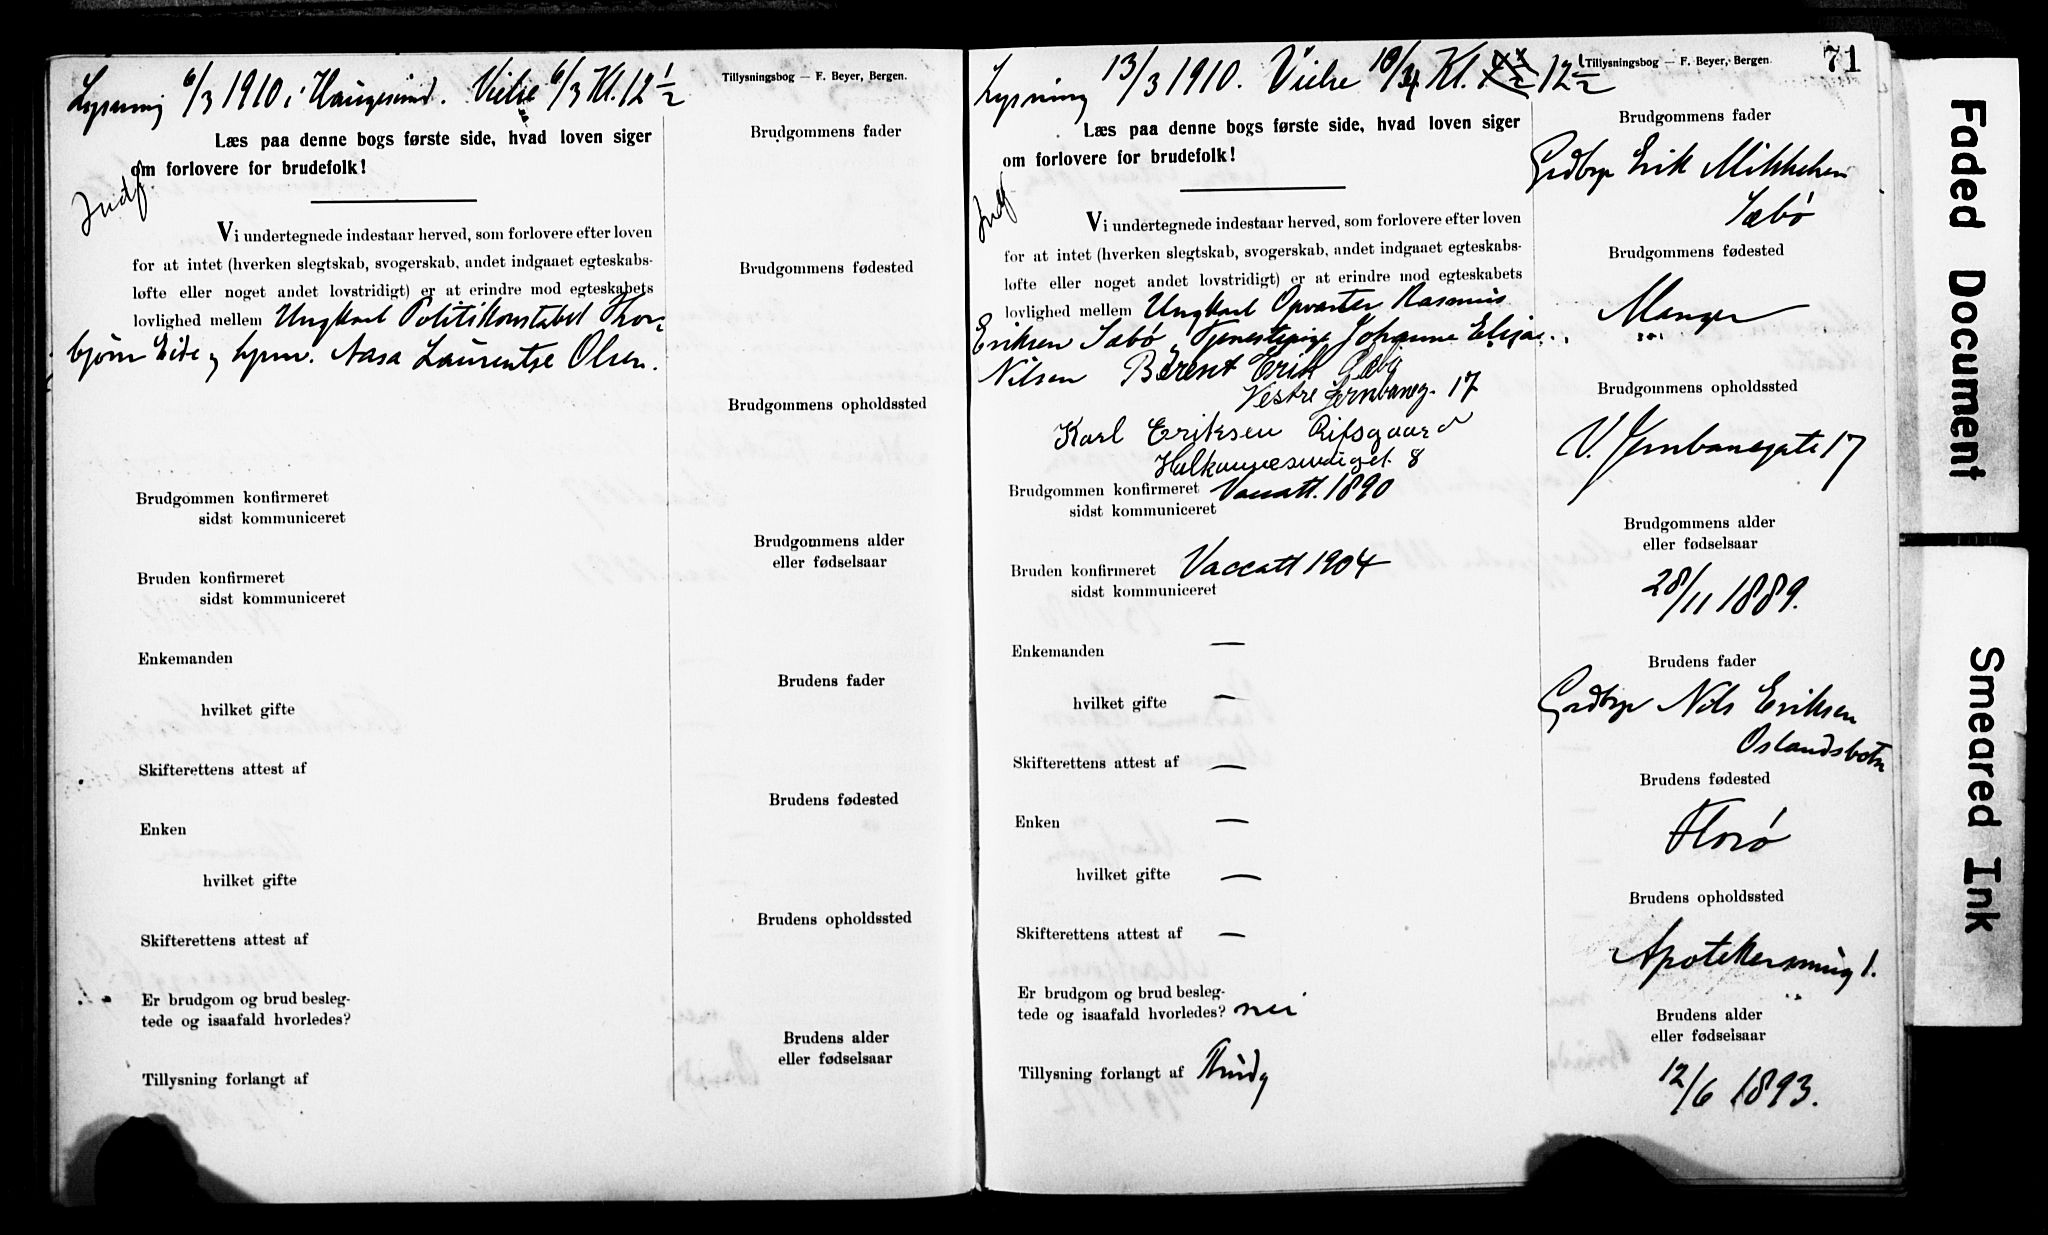 Lysning 6/3 1910 i Haugesund. Vielse 6/3 Kl. 12 1/2
Tillysningsbog — F. Beyer, Bergen.
Læs paa denne bogs første side, hvad loven siger
om forlovere for brudefolk!
Indf.
Vi undertegnede indestaar herved, som forlovere efter loven
for at intet (hverken slegtskab, svogerskab, andet indgaaet egteskabs-
løfte eller noget andet lovstridigt) er at erindre mod egteskabets
lovlighed mellem Ungkarl Politikonstabel Thor-
bjørn Eide og hjmv. Aasa Laurentse Olsen.
Brudgommen konfirmeret
sidst kommuniceret
Bruden konfirmeret
sidst kommuniceret
Enkemanden
hvilket gifte
Skifterettens attest af
Enken
hvilket gifte
Skifterettens attest af
Er brudgom og brud besleg-
tede og isaafald hvorledes?
Tillysning forlangt af
Brudgommens fader
Brudgommens fødested
Brudgommens opholdssted
Brudgommens alder
eller fødselsaar
Brudens fader
Brudens fødested
Brudens opholdssted
Brudens alder
eller fødselsaar
71
Lysning 13/3 1910. Vielse 10/4 Kl. 12 1/2
Tillysningsbog — F. Beyer, Bergen.
Læs paa denne bogs første side, hvad loven siger
om forlovere for brudefolk!
Vi undertegnede indestaar herved, som forlovere efter loven
for at intet (hverken slegtskab, svogerskab, andet indgaaet egteskabs-
løfte eller noget andet lovstridigt) er at erindre mod egteskabets
lovlighed mellem Ungkarl Opvarter Rasmus
Eriksen Sæbø, Tjenestepige Johanne Elisae
Nilsen Berent Erik Sæbø
Vestre Jernbaneg. 17
Karl Eriksen Rifsgaard
8
Brudgommen konfirmeret Vaccatt. 1890
sidst kommuniceret
Bruden konfirmeret Vaccatt 1904
sidst kommuniceret
Enkemanden —
hvilket gifte —
Skifterettens attest af —
Enken —
hvilket gifte —
Skifterettens attest af —
Er brudgom og brud besleg-
tede og isaafald hvorledes? nei
Tillysning forlangt af Brudg
Brudgommens fader
Grdbrp Erik Mikkelsen
Sæbø
Brudgommens fødested
Manger
Brudgommens opholdssted
V. Jernbanegate 17
Brudgommens alder
eller fødselsaar
28/11 1889.
Brudens fader
Grdbrp Nils Eriksen
Oslandsbotn
Brudens fødested
Florø
Brudens opholdssted
Apotekersmug 1.
Brudens alder
eller fødselsaar
12/6 1893.
Faded Document
Smeared Ink